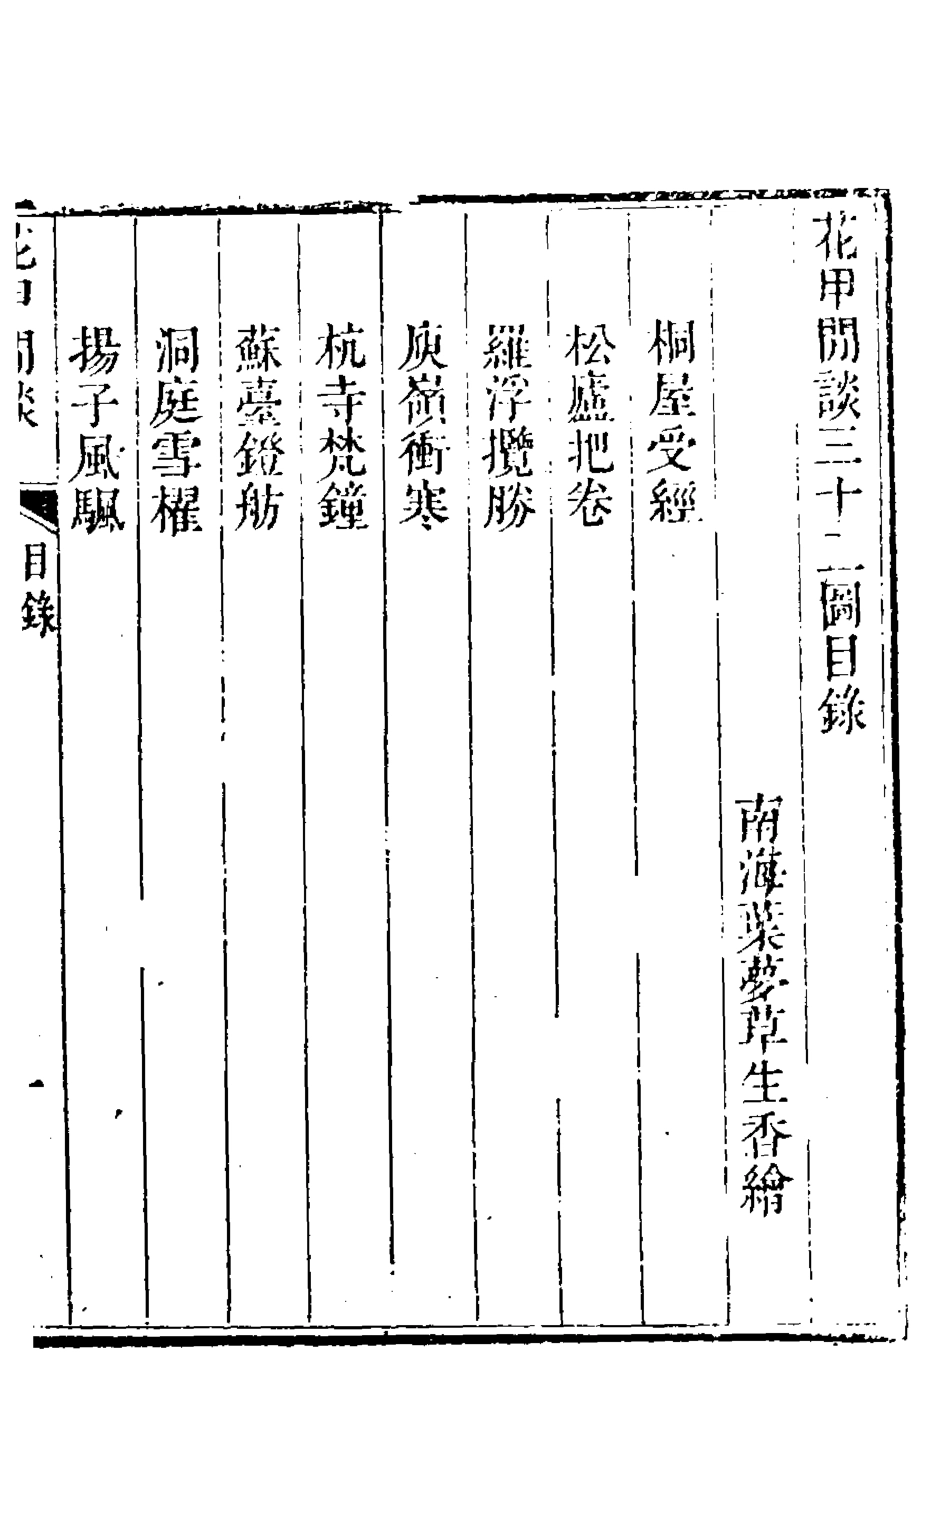 花甲閒談三十二圖目錄
南海葉夢草生香繪
桐屋受經
松廬把卷
羅浮攬勝
庾嶺衝寒
杭寺梵鐘
蘇臺鐙舫
洞庭雪櫂
揚子風颿
花甲閒談
目錄
一